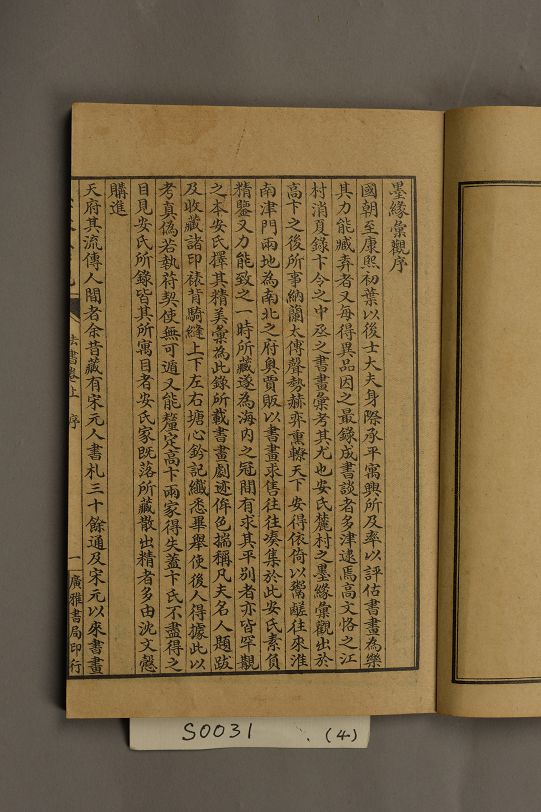 墨緣彙觀序
國朝至康熙初葉以後士大夫身際承平寓興所及率以評估書畫為樂
其力能臧弆者又每得異品因之最錄成書談者多津逮焉高文恪之江
村消夏錄卞令之中丞之書畫彙考其尤也安氏麓村之墨緣彙觀出於
高卞之後所事納蘭太傅聲勢赫弈熏轑天下安得依倚以鬻鹺往來淮
南津門兩地為南北之府奧賈販以書畫求售往往湊集於此安氏素負
精鑒又力能致之一時所藏遂為海內之冠間有求其平別者亦皆罕覯
之本安氏擇其精美彙為此錄所載書畫劇迹侔色揣稱凡夫名人題跋
及收藏諸印裱背騎縫上下左右塘心鈐記纖悉畢舉使後人得據此以
考真偽若執符契使無可遁又能釐定高卞兩家得失蓋卞氏不盡得之
目見安氏所錄皆其所寓目者安氏家既落所藏散出精者多由沈文慤
購進
天府其流傳人間者余昔藏有宋元人書札三十餘通及宋元以來書畫
法書卷上 序
一
廣雅書局印行
S0031 (4)